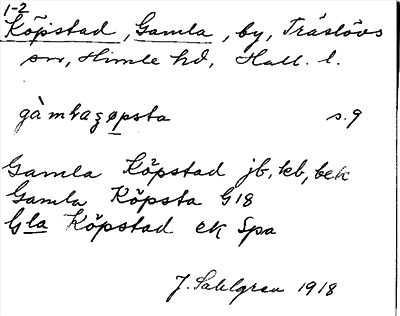 1-2
Köpstad, Gamla, by, Träslövs
sn, Himle hd, Hall. l.
gàmlagøpsta s. 9
Gamla Köpstad jb, kb, bek
Gamla Köpsta G18
Gla Köpstad ek Spa
J. Sahlgren 1918